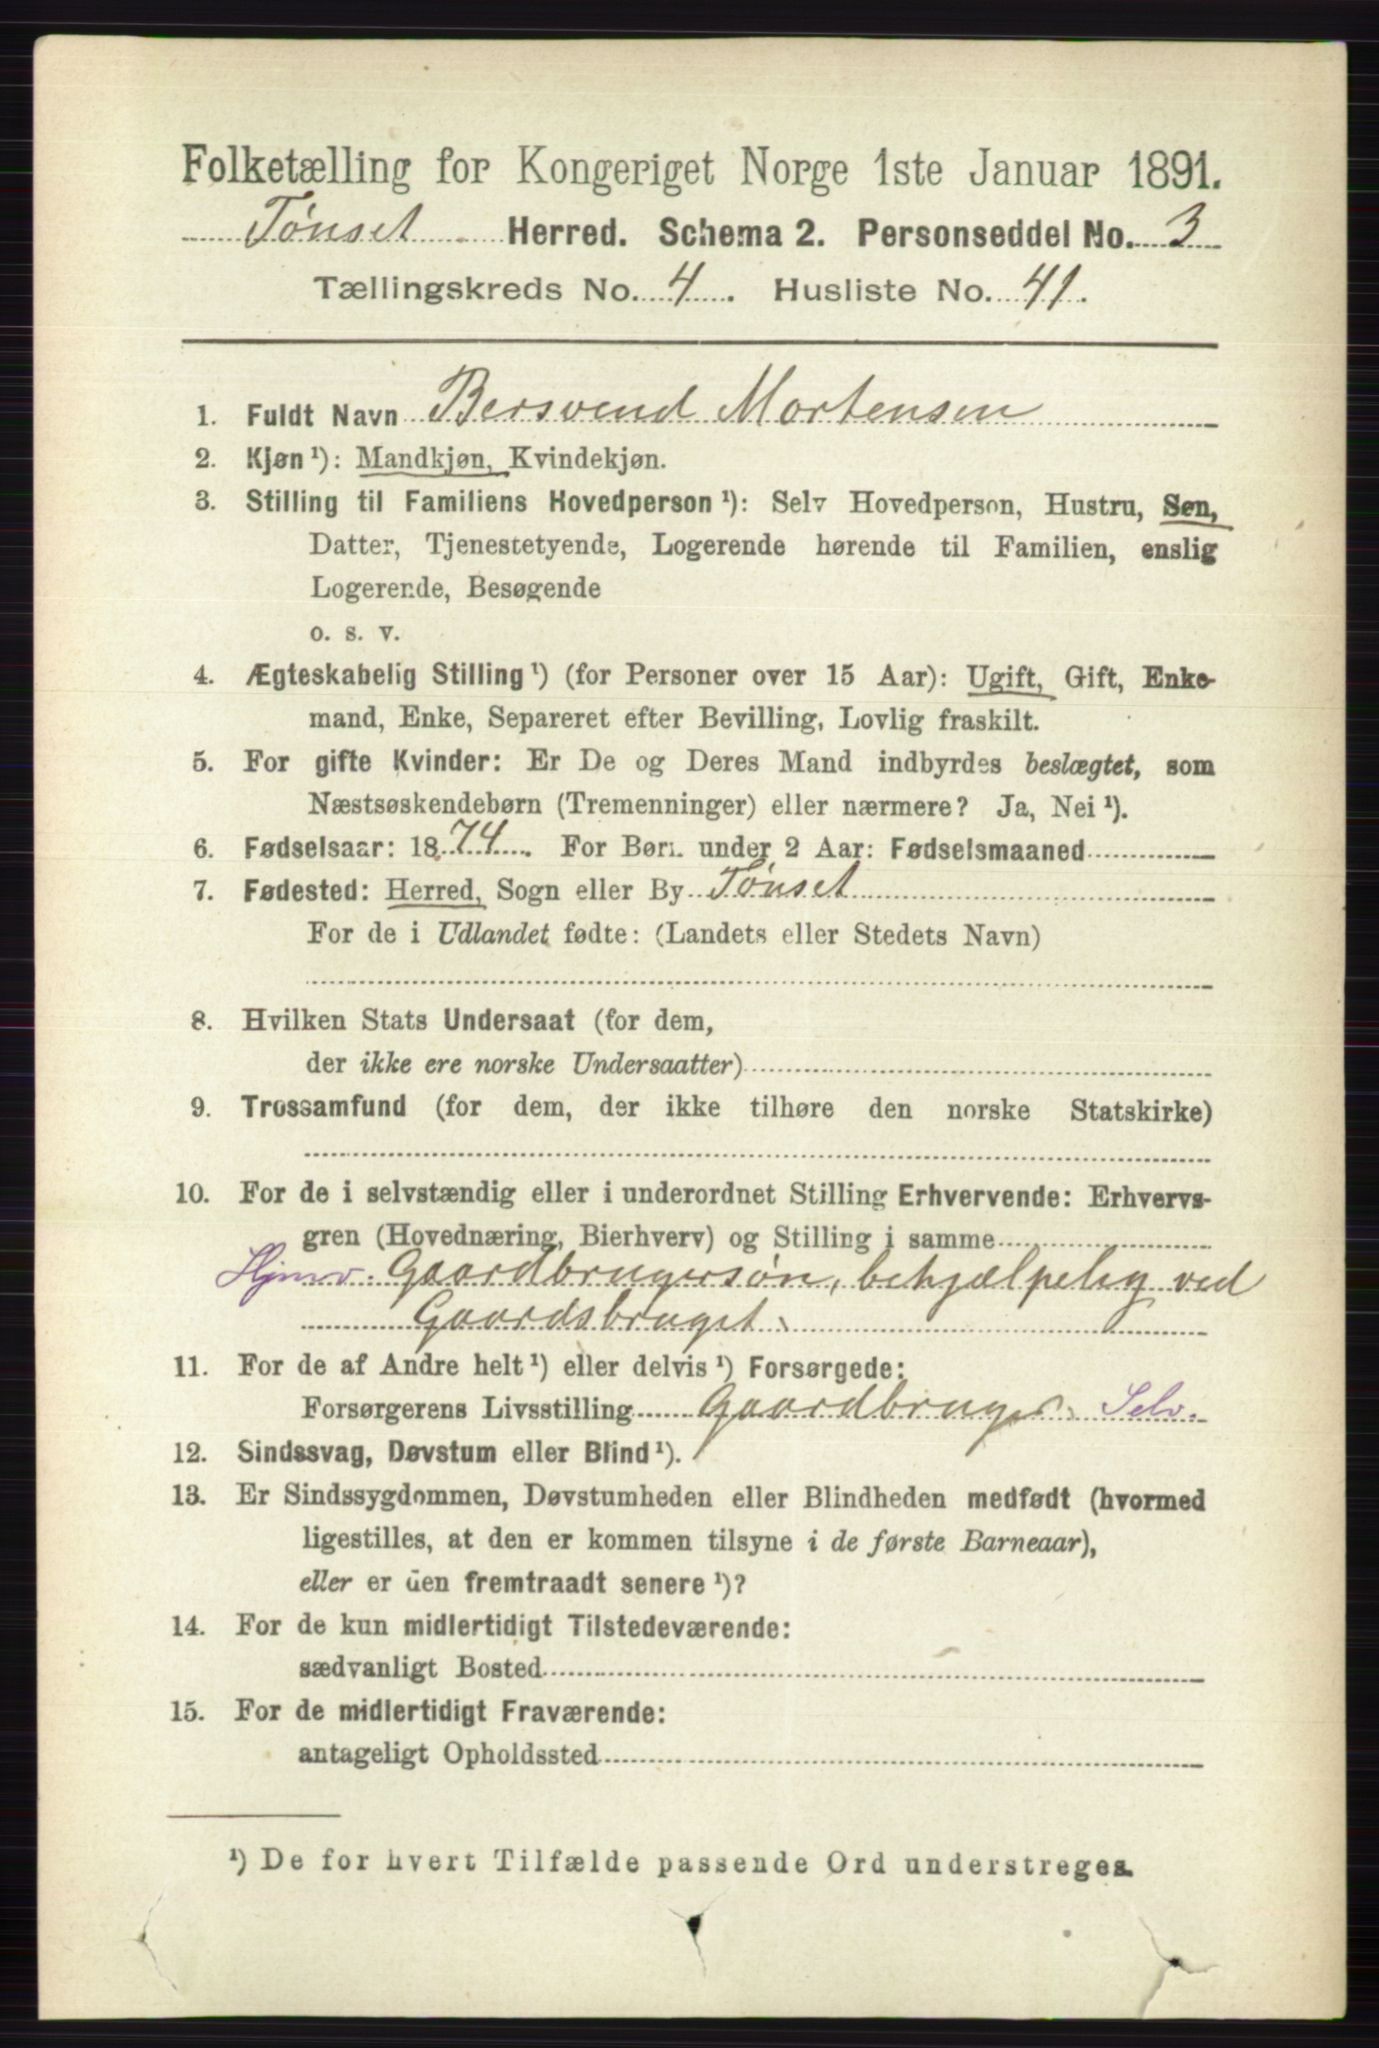 Folketælling for Kongeriget Norge 1ste Januar 1891.
Tønset Herred. Schema 2. Personseddel No. 3
Tællingskreds No. 4. Husliste No. 41.
1. Fuldt Navn Bersvend Mortensen
2. Kjøn ¹): Mandkjøn, Kvindekjøn.
3. Stilling til Familiens Hovedperson ¹): Selv Hovedperson, Hustru, Søn,
Datter, Tjenestetyende, Logerende hørende til Familien, enslig
Logerende, Besøgende
o. s. v.
4. Ægteskabelig Stilling ¹) (for Personer over 15 Aar): Ugift, Gift, Enke-
mand, Enke, Separeret efter Bevilling, Lovlig fraskilt.
5. For gifte Kvinder: Er De og Deres Mand indbyrdes beslægtet, som
Næstsøskendebørn (Tremenninger) eller nærmere? Ja, Nei ¹).
6. Fødselsaar: 1874. For Børn under 2 Aar: Fødselsmaaned
7. Fødested: Herred, Sogn eller By Tønset
For de i Udlandet fødte: (Landets eller Stedets Navn)
8. Hvilken Stats Undersaat (for dem,
der ikke ere norske Undersaatter)
9. Trossamfund (for dem, der ikke tilhøre den norske Statskirke)
10. For de i selvstændig eller i underordnet Stilling Erhvervende: Erhvervs-
gren (Hovednæring, Bierhverv) og Stilling i samme
Hjmv. Gaardbrugersøn, behjælpelig ved
Gaardsbruget.
11. For de af Andre helt ¹) eller delvis ¹) Forsørgede:
Forsørgerens Livsstilling Gaardbruger. Selv.
12. Sindssvag, Døvstum eller Blind ¹).
13. Er Sindssygdommen, Døvstumheden eller Blindheden medfødt (hvormed
ligestilles, at den er kommen tilsyne i de første Barneaar),
eller er den fremtraadt senere ¹)?
14. For de kun midlertidigt Tilstedeværende:
sædvanligt Bosted
15. For de midlertidigt Fraværende:
antageligt Opholdssted
¹) De for hvert Tilfælde passende Ord understreges.